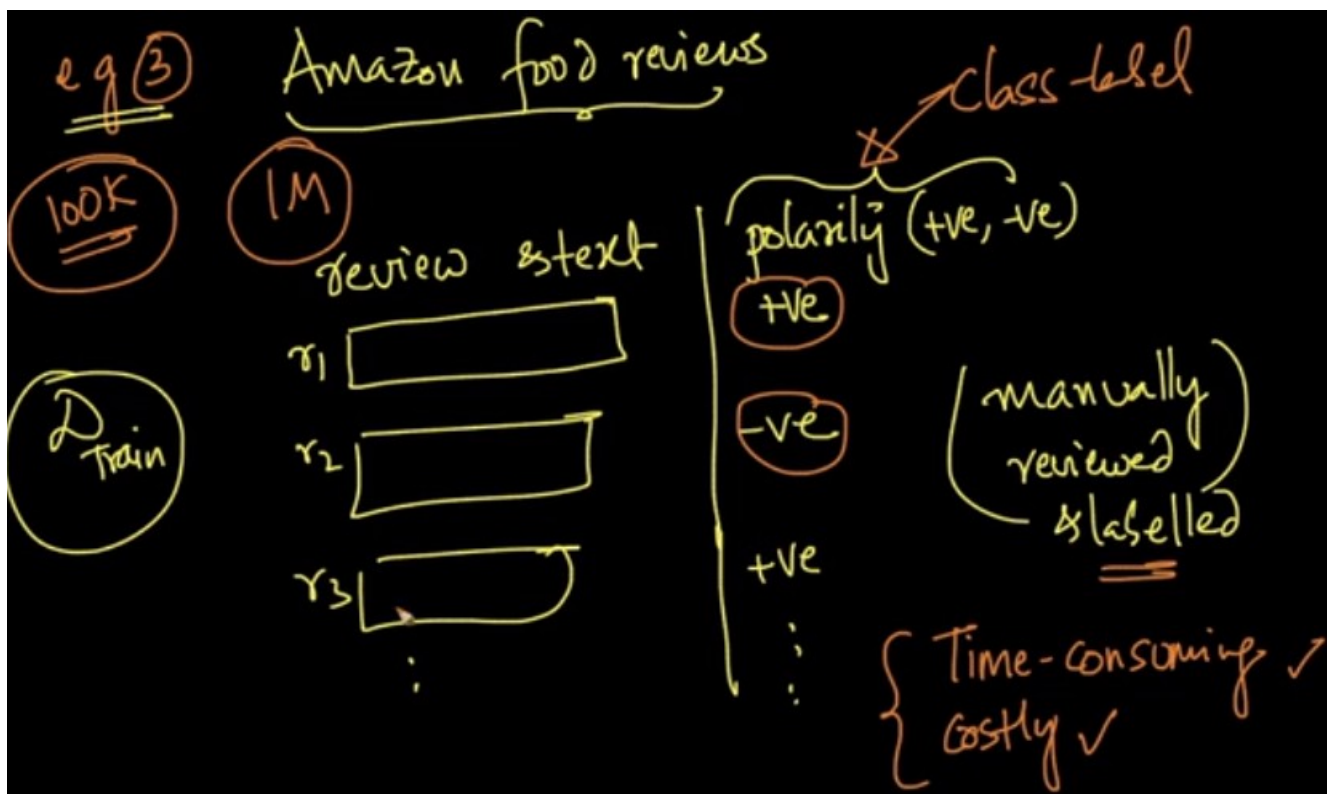 eg ③ Amazon food reviews
Class-label
100K 1M
review & text
polarity (+ve, -ve)
r1 +ve
D Train
r2 -ve
r3 +ve
(manually
reviewed
& labelled)
{ Time-consuming ✓
costly ✓